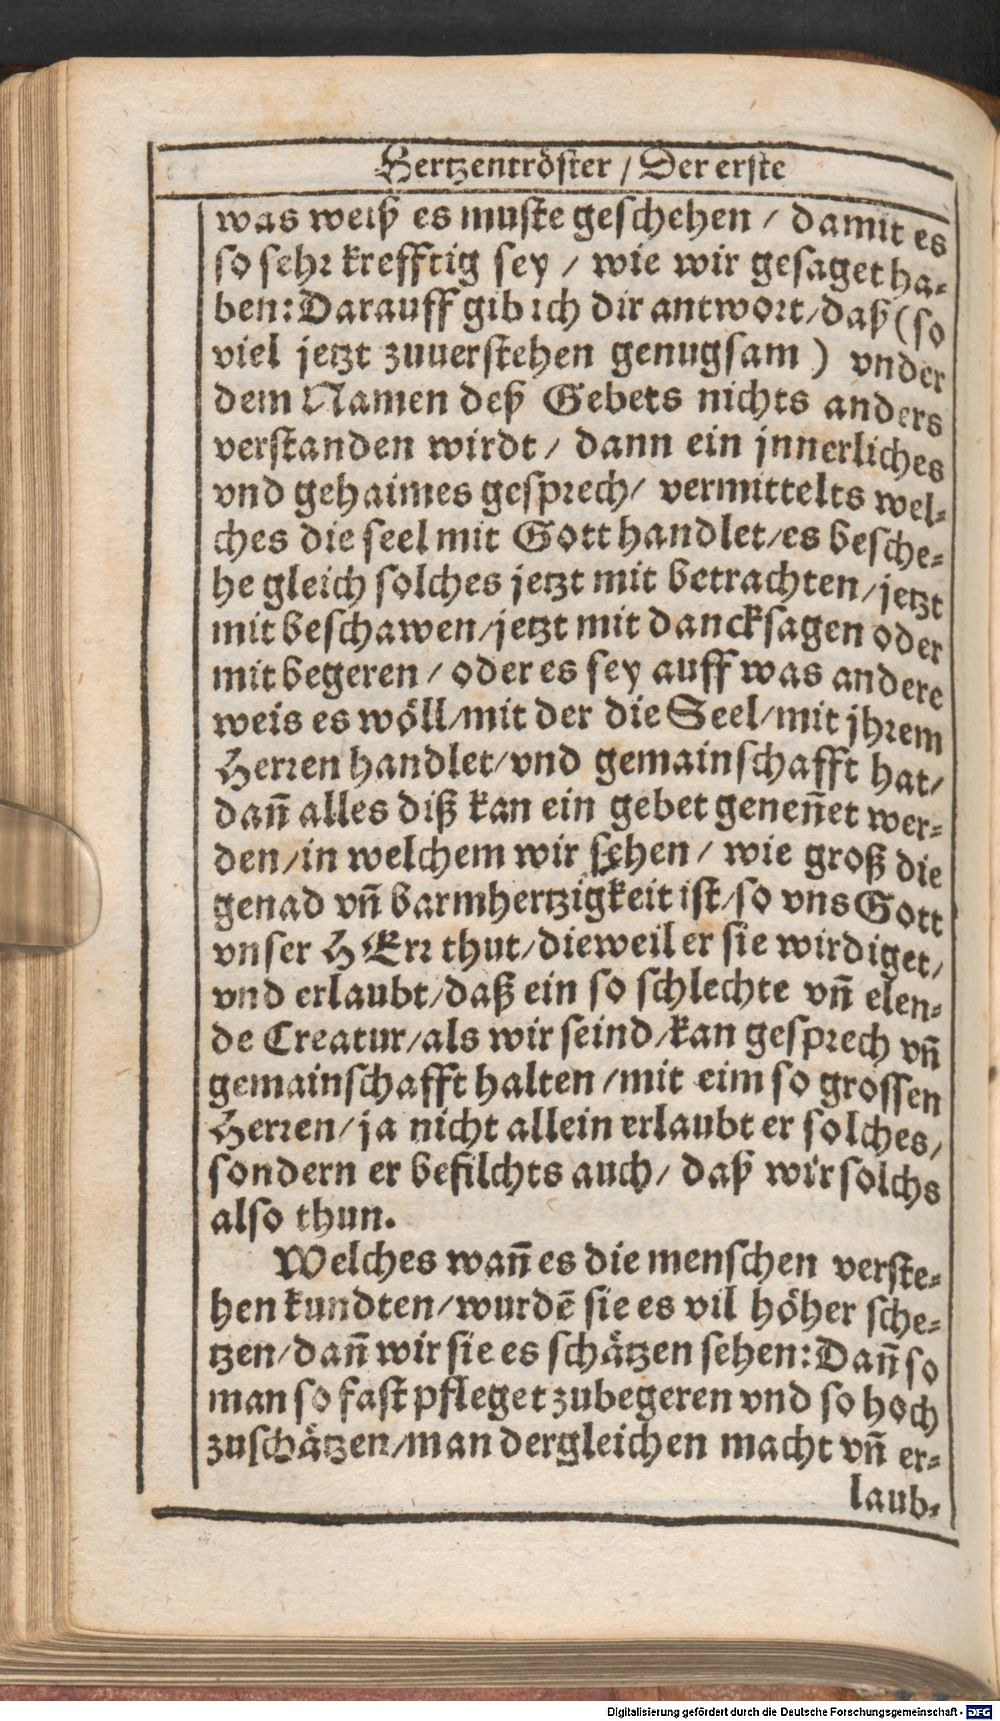 Hertzentröster / Der erste
was weiß es muste geschehen / damit es
so sehr krefftig sey / wie wir gesaget ha-
ben: Darauff gib ich dir antwort / daß (so
viel jetzt zuuerstehen genugsam) vnder
dem Namen deß Gebets nichts anders
verstanden wirdt / dann ein jnnerliches
vnd gehaimes gesprech / vermittelts wel-
ches die seel mit Gott handlet / es besche-
he gleich solches jetzt mit betrachten / jetzt
mit beschawen / jetzt mit dancksagen oder
mit begeren / oder es sey auff was andere
weis es wöll / mit der die Seel / mit jhrem
Herren handlet / vnd gemainschafft hat /
dañ alles diß kan ein gebet geneñet wer-
den / in welchem wir sehen / wie groß die
genad vñ barmhertzigkeit ist / so vns Gott
vnser HErr thut / dieweil er sie wirdiget /
vnd erlaubt / daß ein so schlechte vñ elen-
de Creatur / als wir seind / kan gesprech vñ
gemainschafft halten / mit eim so grossen
Herren / ja nicht allein erlaubt er solches /
sondern er befilchts auch / daß wir solchs
also thun.
Welches wañ es die menschen verste-
hen kundten / wurdē sie es vil höher sche-
tzen / dañ wir sie es schätzen sehen: Dañ so
man so fast pfleget zubegeren vnd so hoch
zuschätzen / man dergleichen macht vñ er-
laub-
Digitalisierung gefördert durch die Deutsche Forschungsgemeinschaft - DFG